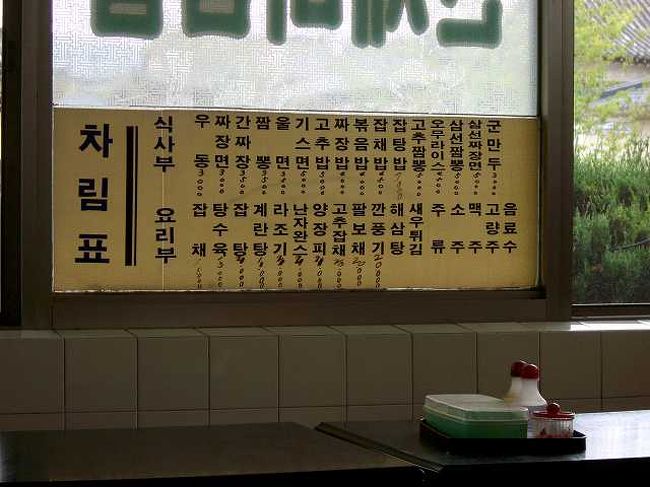 차림표
식사부
우동 3000
짜장면 3000
간짜장 3500
짬뽕 3500
울면
기스면 5000
고추밥 5000
짜장밥
볶음밥
잡채밥
잡탕밥
고추짬뽕
오무라이스
삼선짬뽕 5000
삼선짜장면 5000
군만두
요리부
잡채
탕수육
잡탕
계란탕
라조기
난자완스
양장피
고추잡채
팔보채
깐풍기 20000
해삼탕
새우튀김
주류
소주
맥주
고량주
음료수